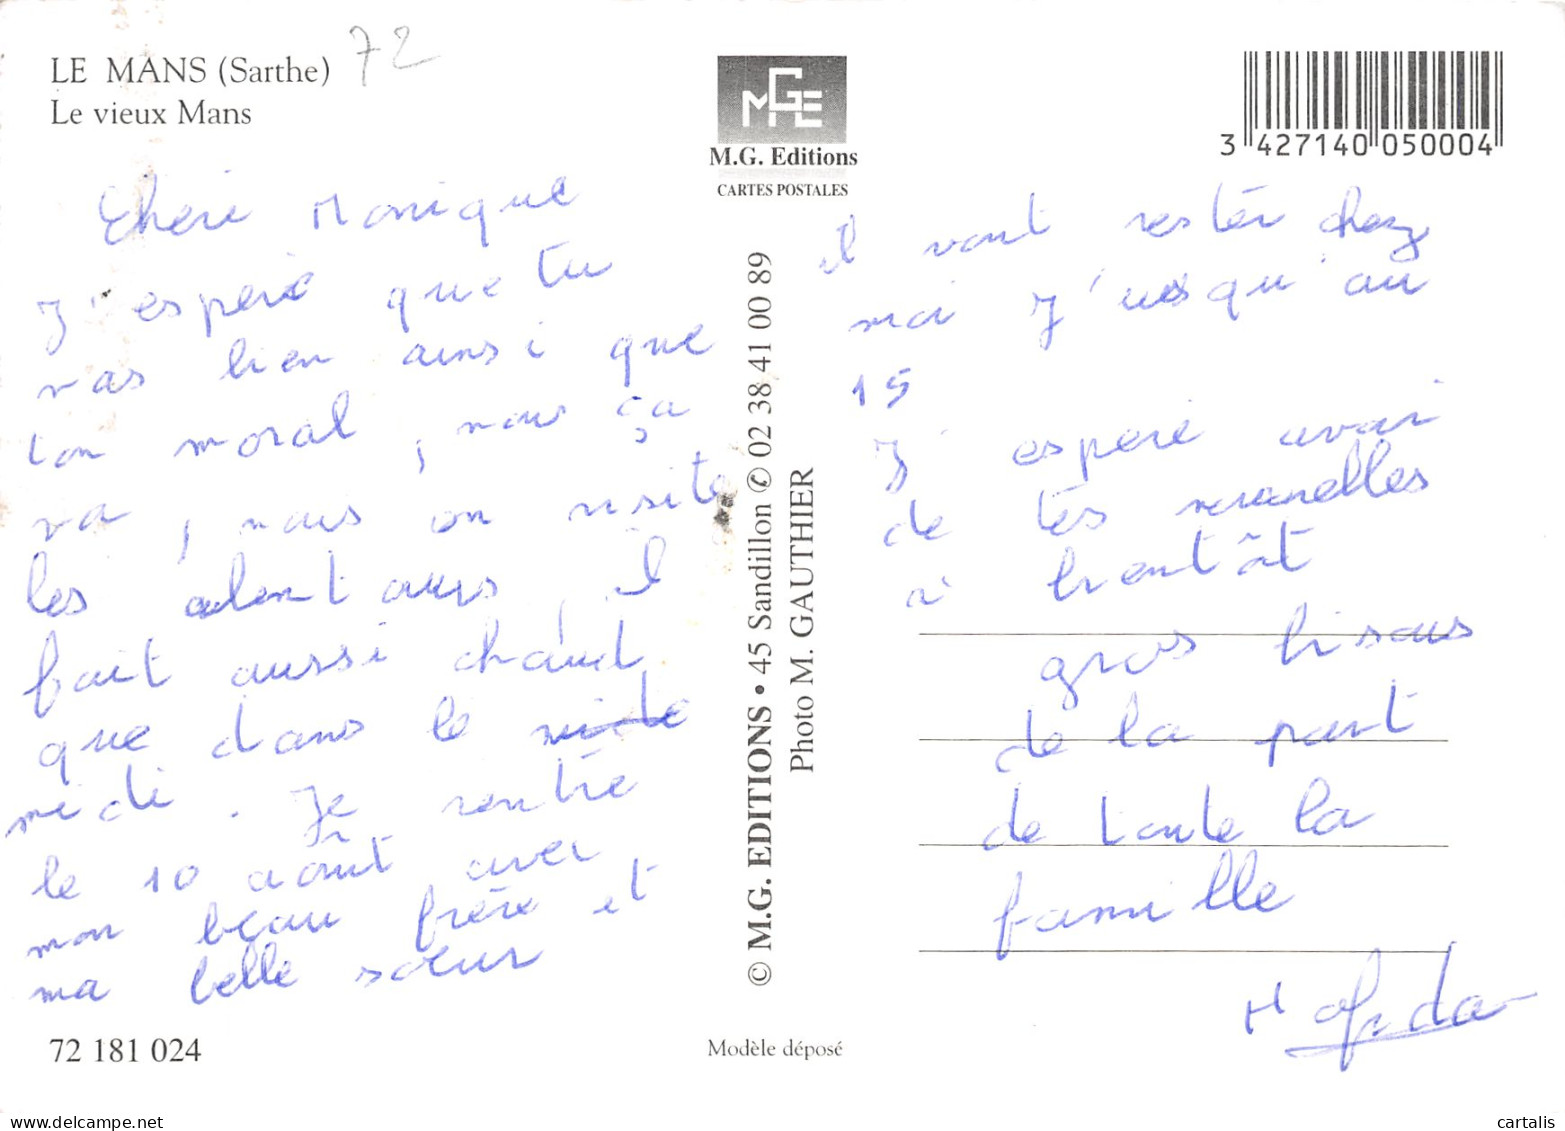 LE MANS (Sarthe) 72
Le vieux Mans
M.G. Editions
CARTES POSTALES
3 427140 050004
Chéri Monique
J'espère que tu
vas bien ainsi que
ton moral, nous ça
va, nous on visite
les alentours, il
fait aussi chaud
que dans le
midi. Je rentre
le 10 août avec
mon beau frère et
ma belle sœur
72 181 024
© M.G. EDITIONS • 45 Sandillon ✆ 02 38 41 00 89
Photo M. GAUTHIER
Modèle déposé
il vont rester chez
moi j'usqu'au
15
J'espère avoir
de tes nouvelles
à bientôt
gros bisous
de la part
de toute la
famille
cartalis